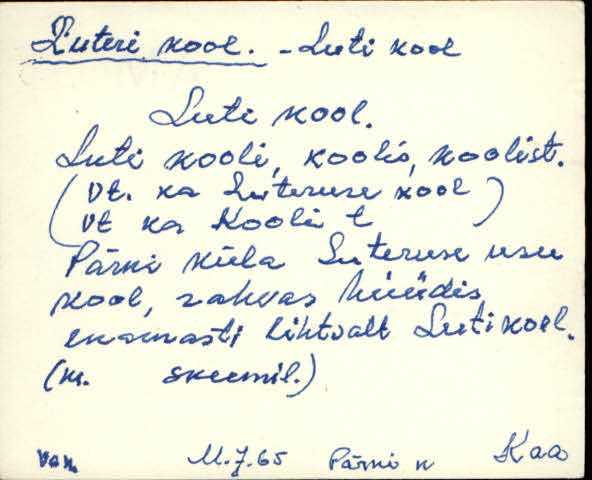 Luteri kool. - Luti kool
Luti kool.
Luti kooli, koolis, koolist.
(vt. ka Luteruse kool)
vt ka Kooli t
Pärni küla Luteruse usu
kool, rahvas hüüdis
enamasti lihtsalt Luti kool.
(n. skeemil.)
Van. M.J.65 Pärni k Kaa